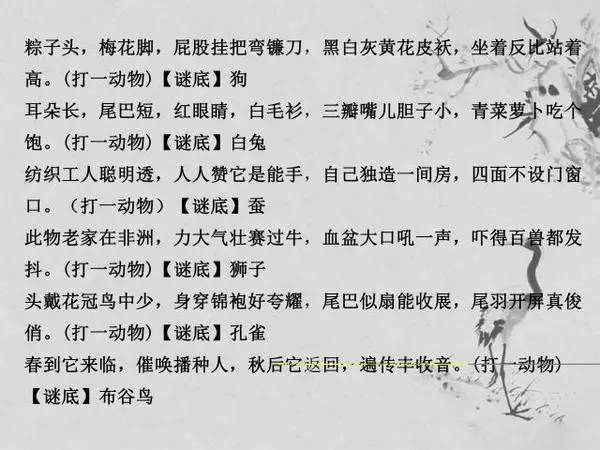 粽子头，梅花脚，屁股挂把弯镰刀，黑白灰黄花皮袄，坐着反比站着
高。(打一动物)【谜底】狗
耳朵长，尾巴短，红眼睛，白毛衫，三瓣嘴儿胆子小，青菜萝卜吃个
饱。(打一动物)【谜底】白兔
纺织工人聪明透，人人赞它是能手，自己独造一间房，四面不设门窗
口。（打一动物）【谜底】蚕
此物老家在非洲，力大气壮赛过牛，血盆大口吼一声，吓得百兽都发
抖。(打一动物)【谜底】狮子
头戴花冠鸟中少，身穿锦袍好夸耀，尾巴似扇能收展，尾羽开屏真俊
俏。(打一动物)【谜底】孔雀
春到它来临，催唤播种人，秋后它返回，遍传丰收音。(打一动物)
【谜底】布谷鸟